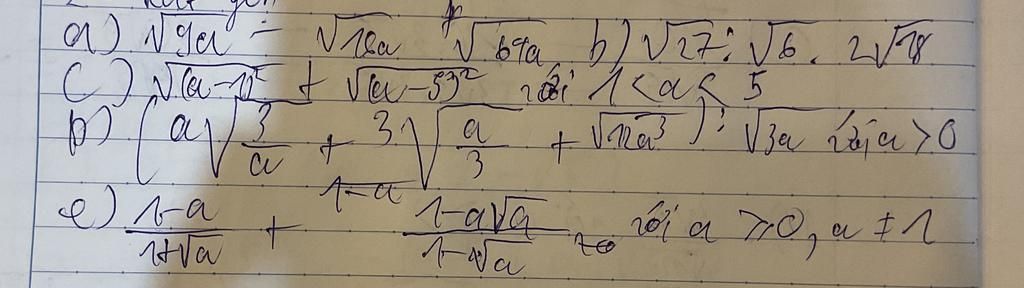 a) √9a - √16a + √64a b) √27 : √6 . 2√18
c) √(a-1)² + √(a-5)² với 1 < a < 5
D) (a√3/a + 3√a/3 + √12a³) : √3a với a > 0
1-a
e) 1-a/1+√a + 1-a√a/1-√a với a ≥ 0, a ≠ 1